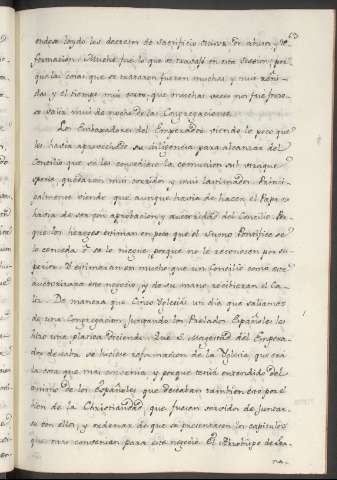 63
ronse leydo los decretos de Sacrificio Missæ, de abusu, y Re
formacion. Mucho fue lo que se travajó en esta Session, por
que las cosas que se trataron fueron muchas, y mui reñi-
das, y el tiempo mui corto, que muchas veces nos fue forzo-
so salir mui de noche de las Congregaciones.
Los Embaxadores del Emperador viendo lo poco que
les havia aprovechado su diligencia para alcanzar del
Concilio que se les concediese la comunion sub utraque
specie, quedaron mui corridos y mui lastimados. Princi-
palmente viendo que aunque havia de hacer el Papa
havia de ser con aprobacion y autoridad del Concilio. Por
que los hereges estiman en poco que el Sumo Pontifice se
lo conceda, ó se lo niegue, porque no le reconocen por su-
perior. Y estimaran en mucho que un Concilio como este
autorizara este negocio, y de su mano recibieran el Ca-
liz. De manera que Cinco Yglesias un dia que saliamos
de una Congregacion, juntando los Prelados Españoles les
hizo una platica diciendo: Que S. Magestad del Empera-
dor deseaba se hiciese reformacion de la Yglesia, que era
la cosa que mas convenia, y porque tenia entendido del
animo de los Españoles que deseaban tambien esto por el
bien de la Christiandad, que fuesen servidos de juntar-
se con ellos, y ordenar de que se presentasen los capitulos
que mas convenian para este negocio. El Arzobispo de Gra-
na-